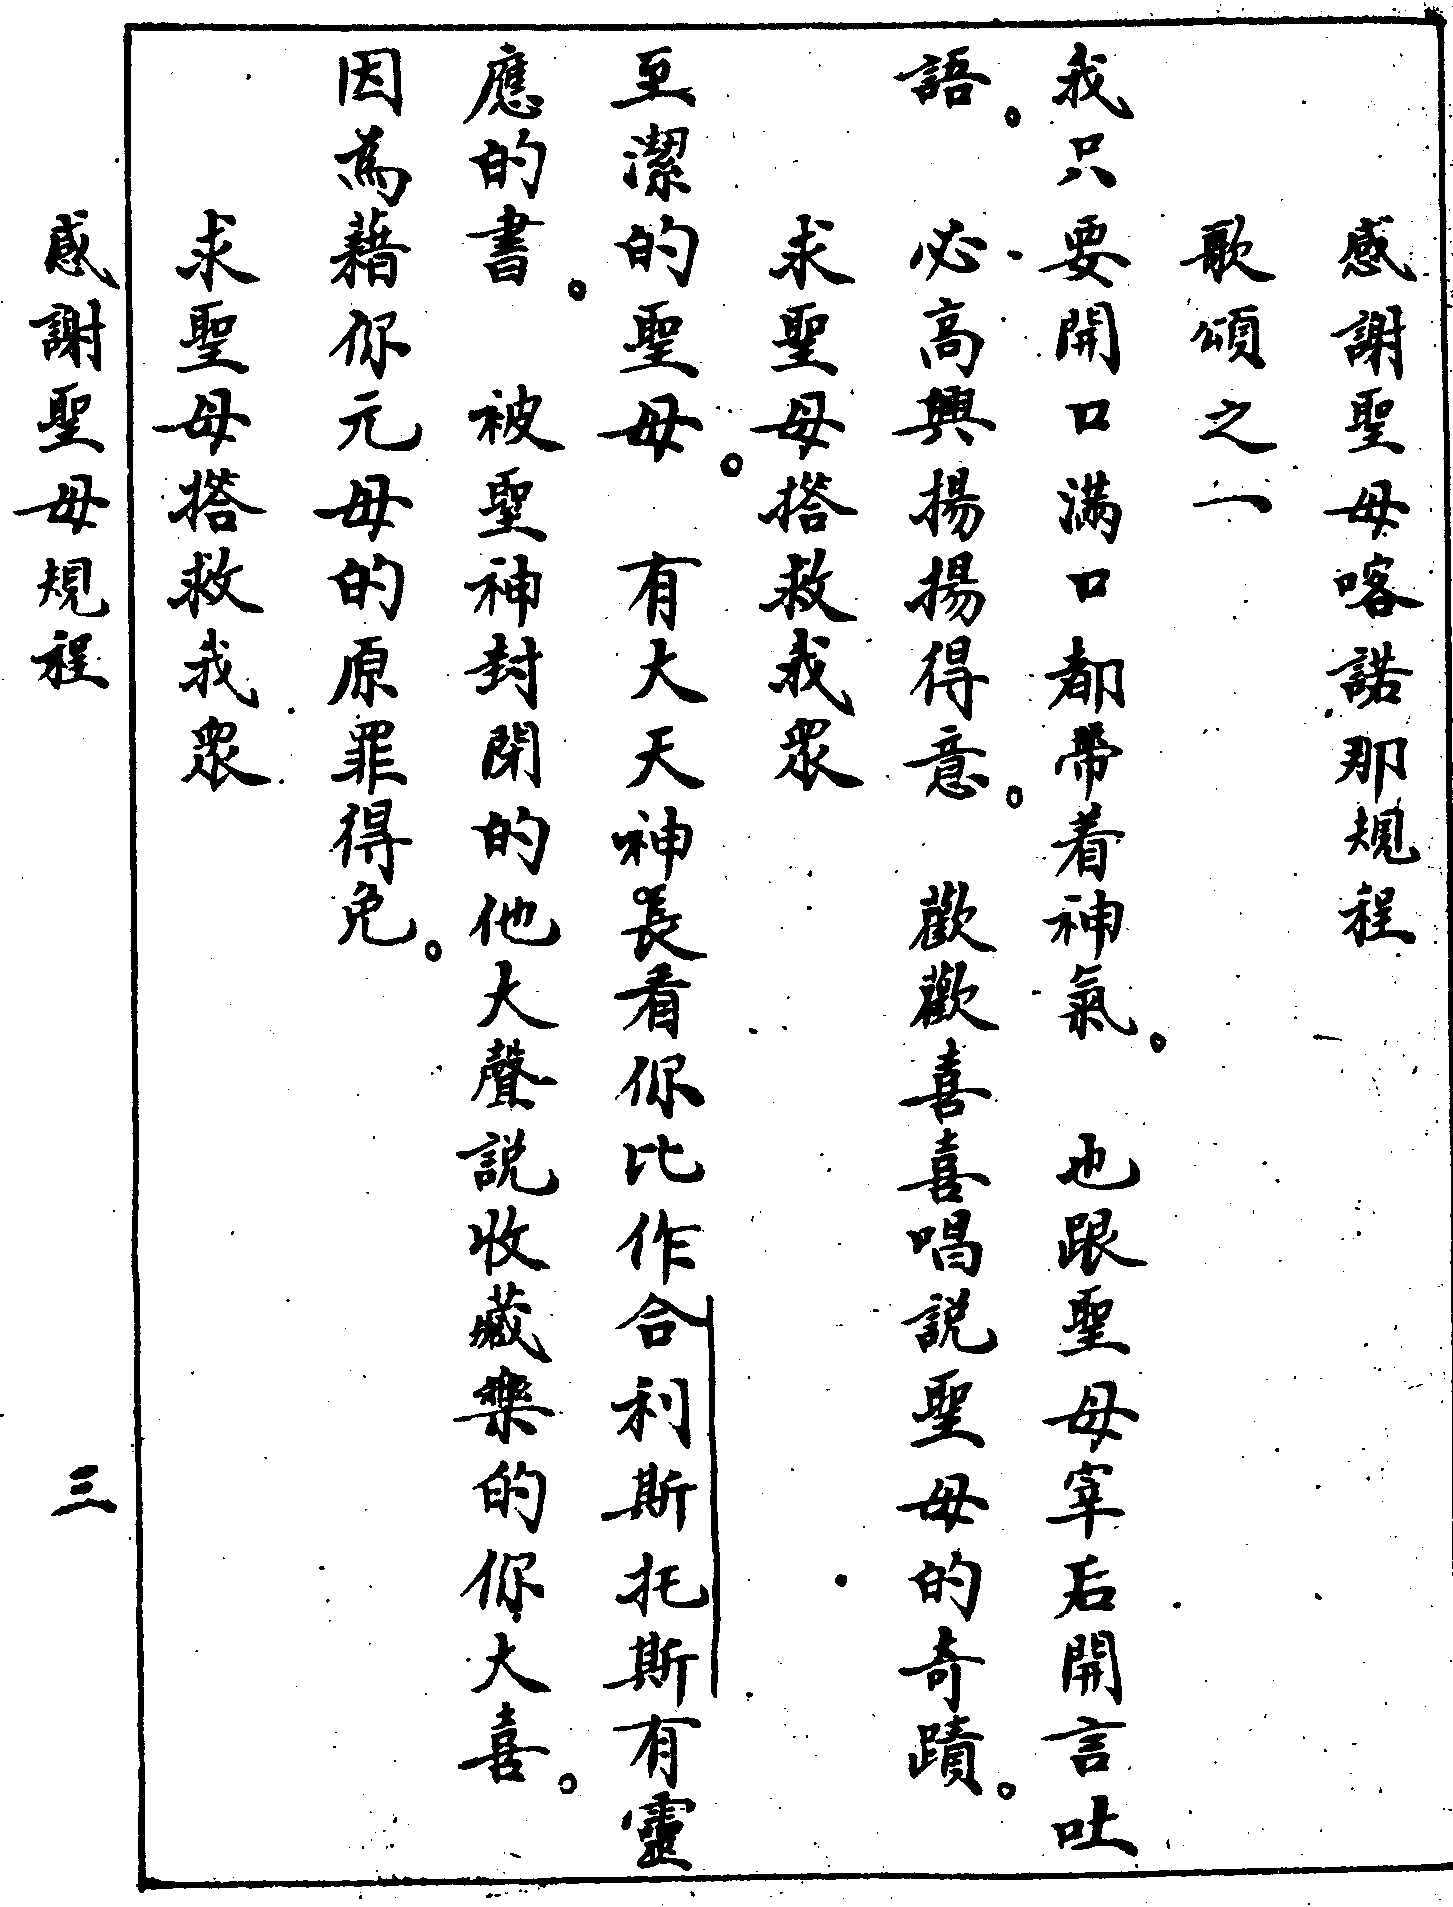 感謝聖母喀諾那規程
歌頌之一
我只要開口滿口都帶着神氣。　也跟聖母宰后開言吐
語。　必高興揚揚得意。　歡歡喜喜唱説聖母的奇蹟。
求聖母搭救我衆
至潔的聖母。　有大天神長看你比作合利斯托斯有靈
應的書。　被聖神封閉的他大聲説收藏樂的你大喜。
因為藉你元母的原罪得免。
求聖母搭救我衆
感謝聖母規程　三